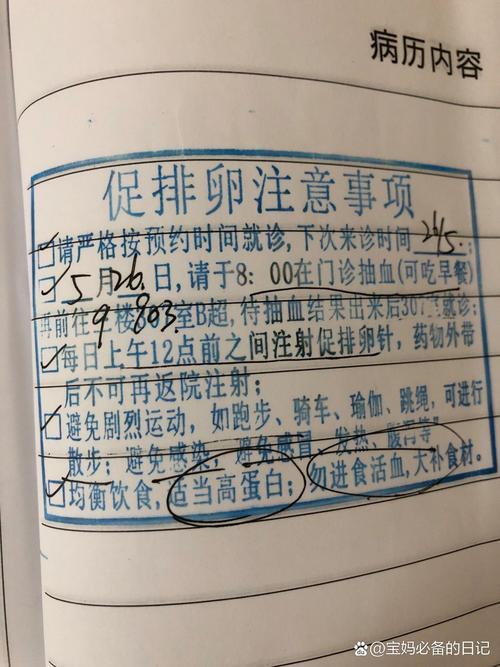 病历内容
促排卵注意事项
请严格按预约时间就诊,下次来诊时间 26/5 ;
5月26日,请于8:00在门诊抽血(可吃早餐)
再前往9楼 室B超,待抽血结果出来后307 就诊;
每日上午12点前之间注射促排卵针,药物外带
后不可再返院注射;
避免剧烈运动,如跑步、骑车、瑜伽、跳绳,可进行
散步;避免感染,避免感冒、发热、腹泻等
均衡饮食,适当高蛋白;勿进食活血,大补食材。
@宝妈必备的日记